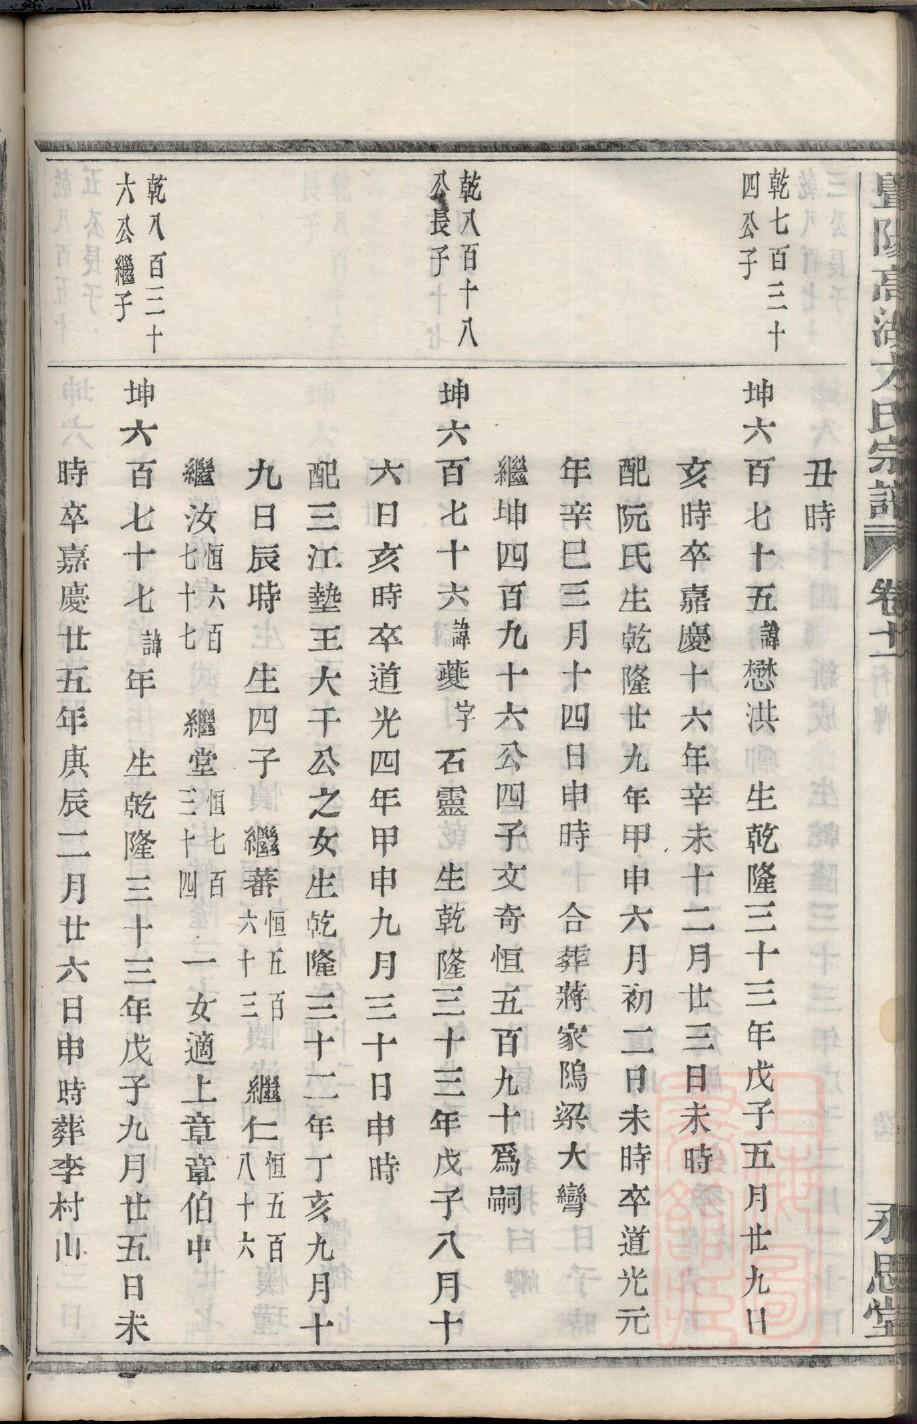 暨陽高湖方氏宗譜 卷十 永思堂
丑時
乾七百三十
四公子
坤六百七十五諱懋洪 生乾隆三十三年戊子五月廿九日
亥時卒嘉慶十六年辛未十二月廿三日未時
配阮氏生乾隆廿九年甲申六月初二日未時卒道光元
年辛巳三月十四日申時 合葬蔣家隝梁大彎
繼坤四百九十六公四子文奇恒五百九十爲嗣
乾八百十八
公長子
坤六百七十六諱夔字石靈 生乾隆三十三年戊子八月十
六日亥時卒道光四年甲申九月三十日申時
配三江墊王大千公之女生乾隆三十二年丁亥九月十
九日辰時 生四子 繼蕃恒五百六十三 繼仁恒五百八十六
繼汝恒六百七十七 繼堂恒七百三十四 一女適上章章伯中
乾八百三十
六公繼子
坤六百七十七諱年 生乾隆三十三年戊子九月廿五日未
時卒嘉慶廿五年庚辰二月廿六日申時葬李村山